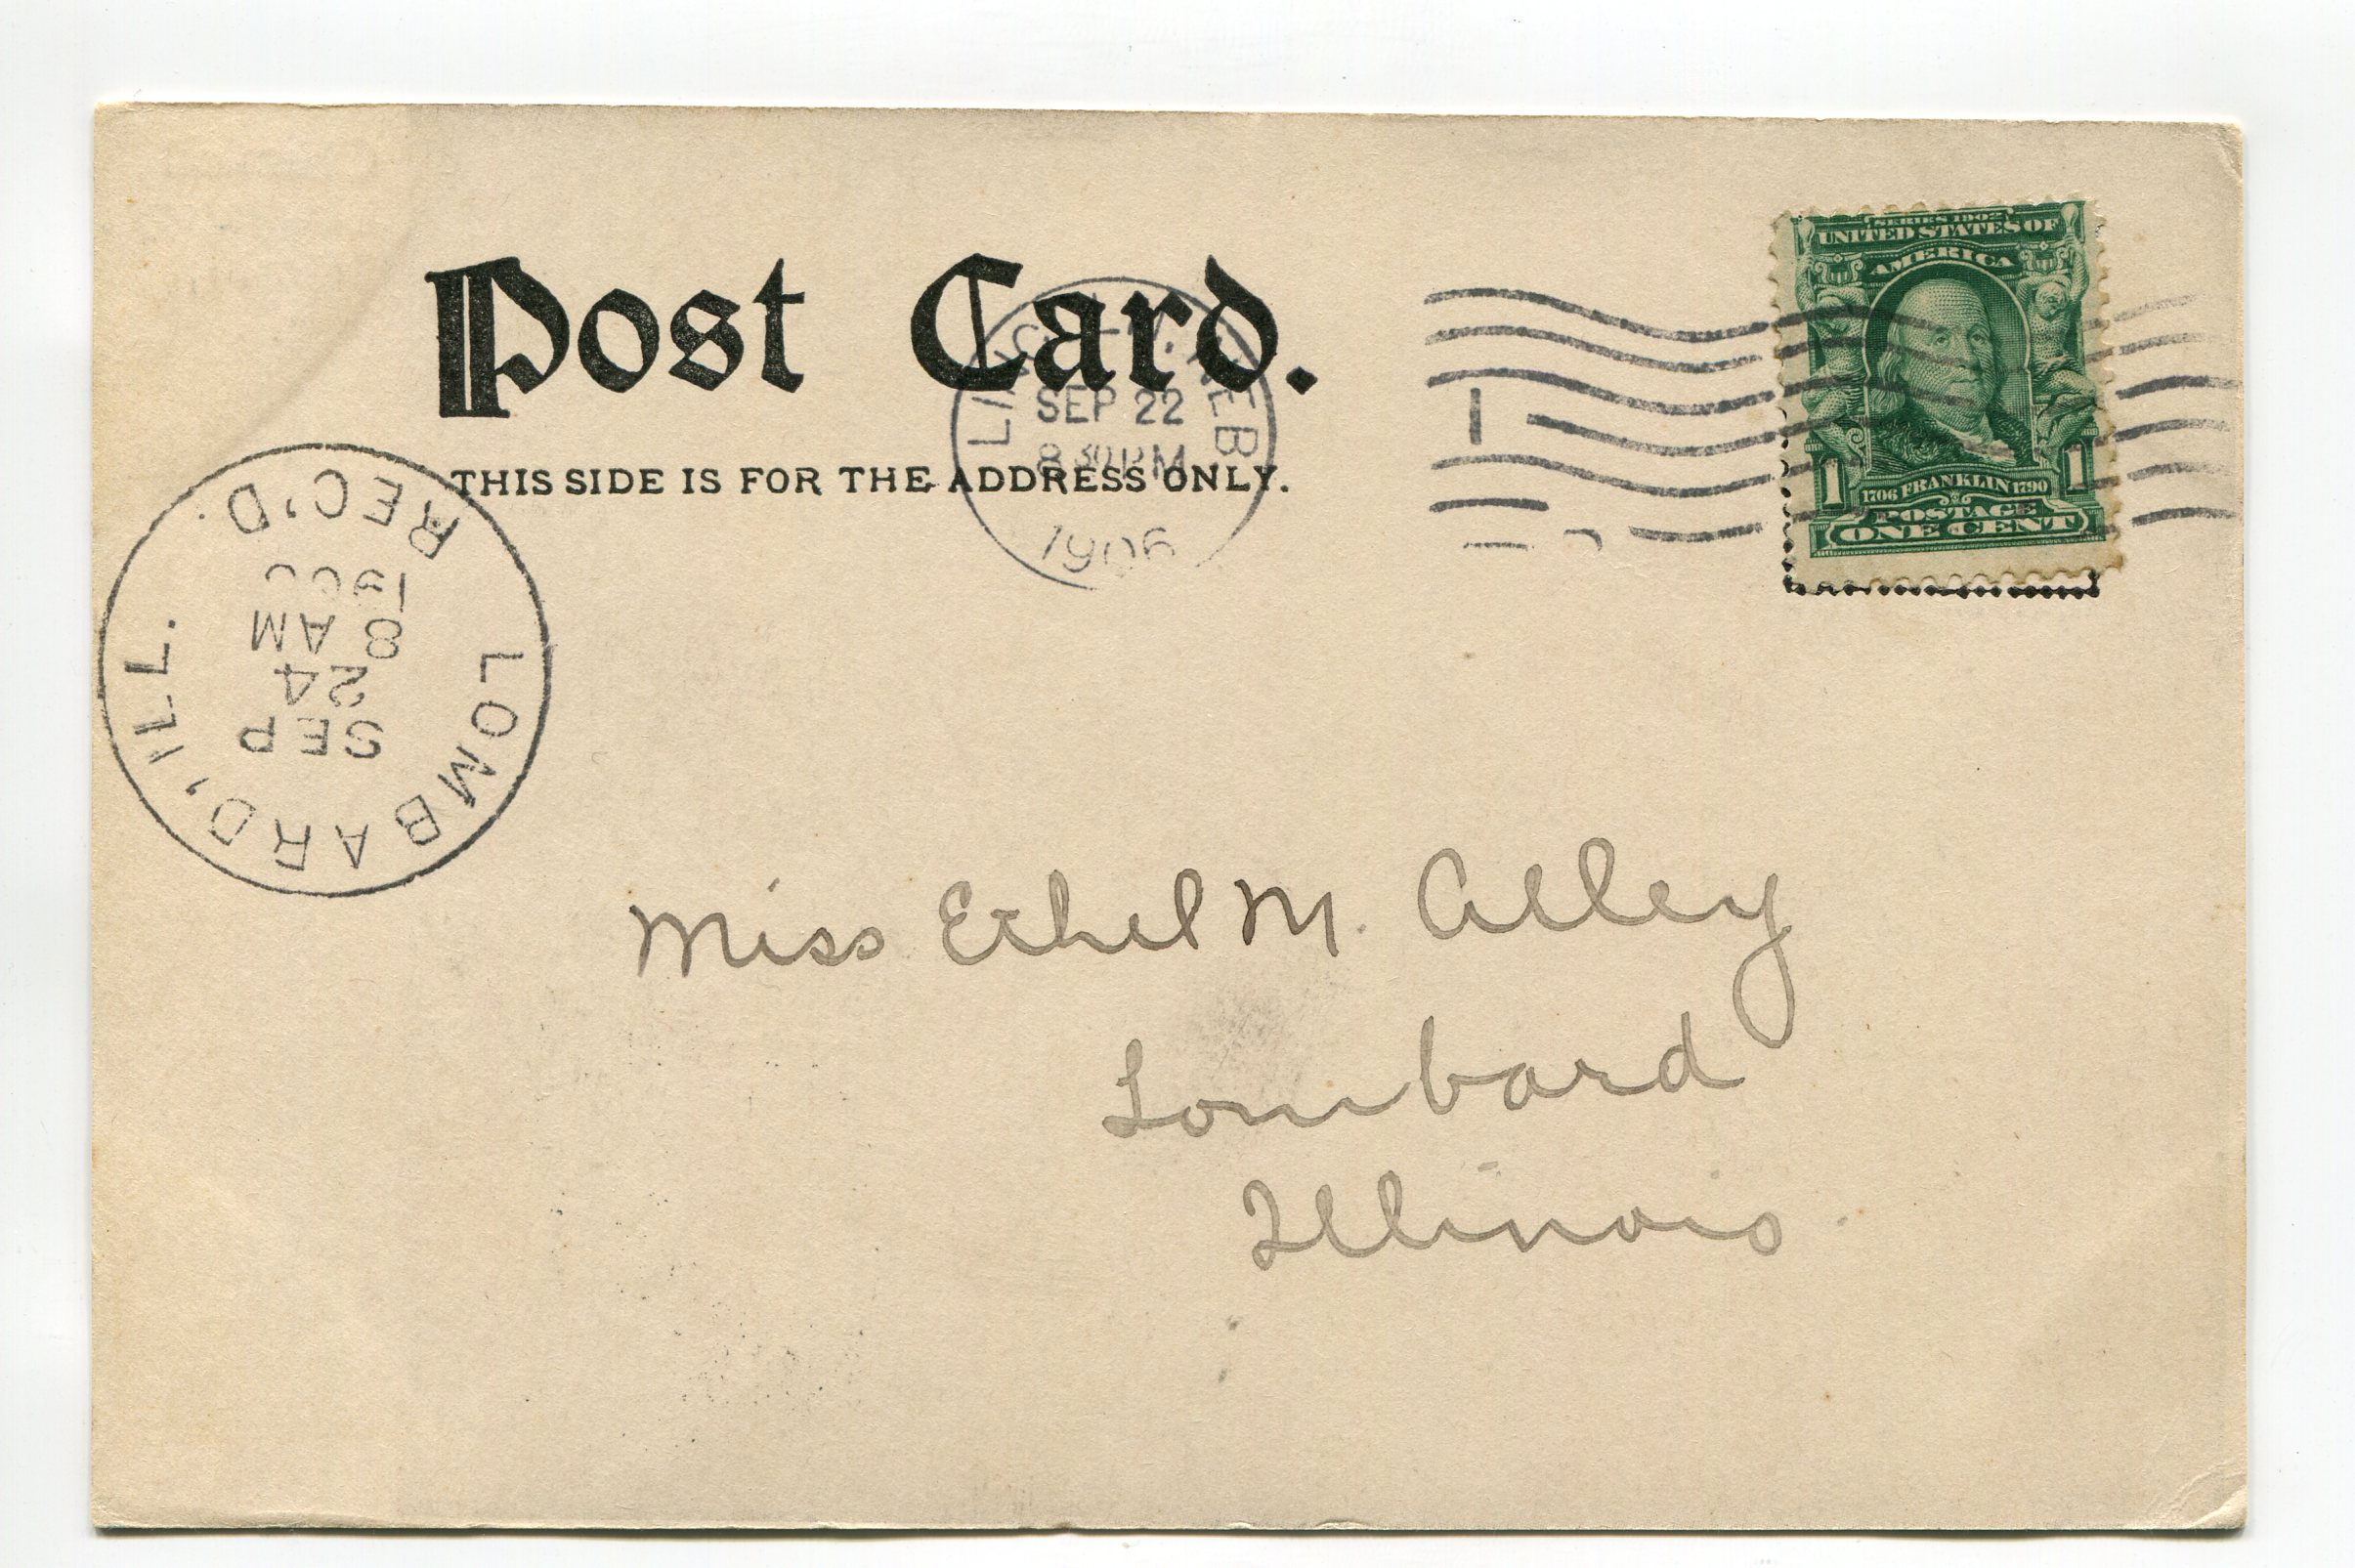 Post Card.
THIS SIDE IS FOR THE ADDRESS ONLY.
LINCOLN, NEB
SEP 22
8 30 PM
1906
SERIES 1902
UNITED STATES OF
AMERICA
1706 FRANKLIN 1790
1 1
POSTAGE
ONE CENT
1
LOMBARD, ILL.
SEP
24
8 AM
REC'D.
Miss Ethel M. Alley
Lombard
Illinois